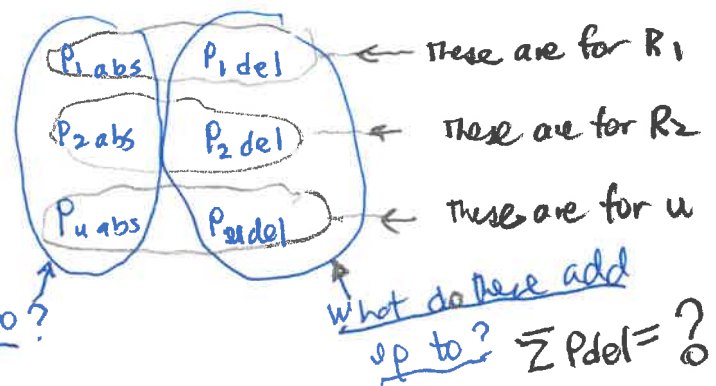 P1 abs P1 del ← These are for R1
P2 abs P2 del ← These are for R2
Pu abs Pu del ← These are for u
o?
What do these add
up to? Σ Pdel = ?